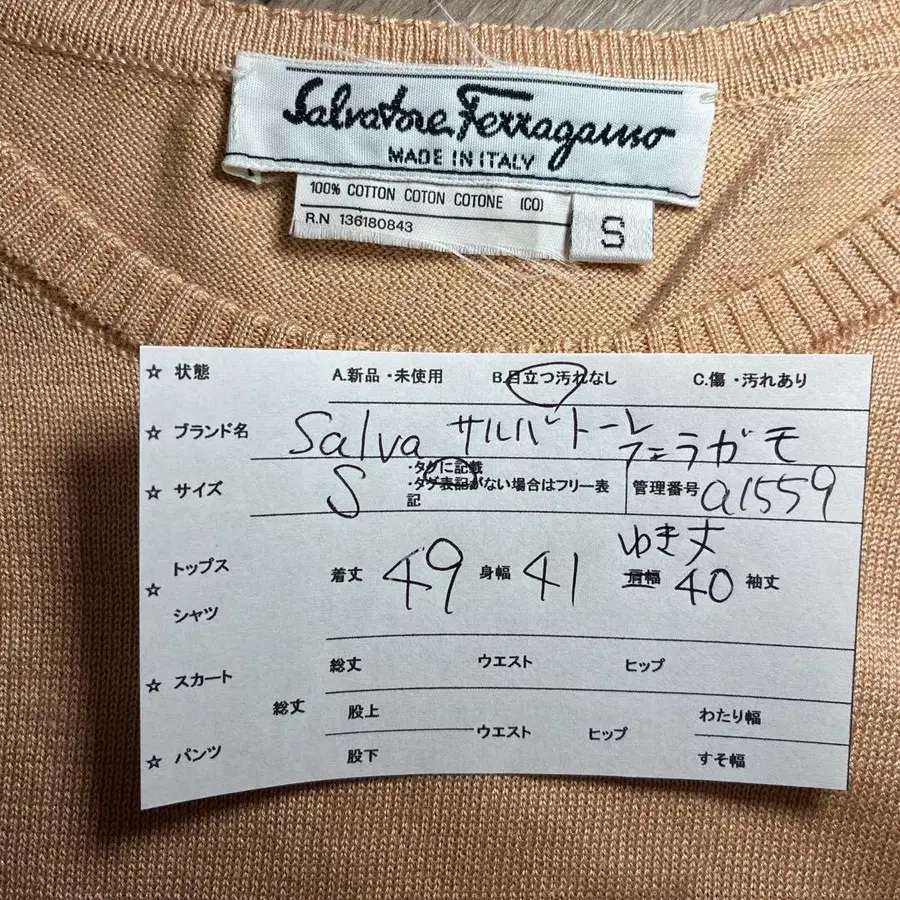 Salvatore Ferragamo
MADE IN ITALY
100% COTTON COTON COTONE (CO)
R.N 136180843
S
☆ 状態 A.新品・未使用 B.目立つ汚れなし C.傷・汚れあり
☆ ブランド名 Salva サルバトーレ
フェラガモ
☆ サイズ S ・タグに記載
・タグ表記がない場合はフリー表記 管理番号 a1559
ゆき丈
☆ トップス シャツ 着丈 49 身幅 41 肩幅 40 袖丈
☆ スカート 総丈 ウエスト ヒップ
☆ パンツ 総丈 股上 ウエスト ヒップ わたり幅
股下 すそ幅